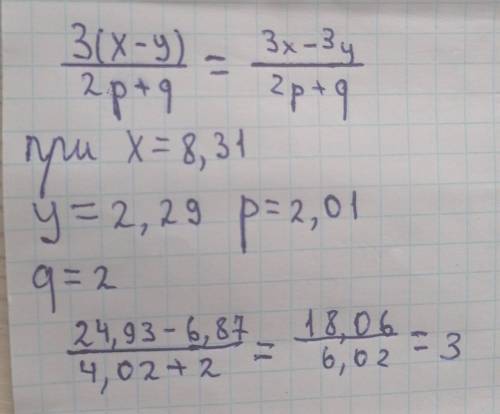 3(x-y)/2p+q = 3x-3y/2p+q
при x=8,31
y=2,29 p=2,01
q=2
24,93-6,87/4,02+2 = 18,06/6,02 = 3